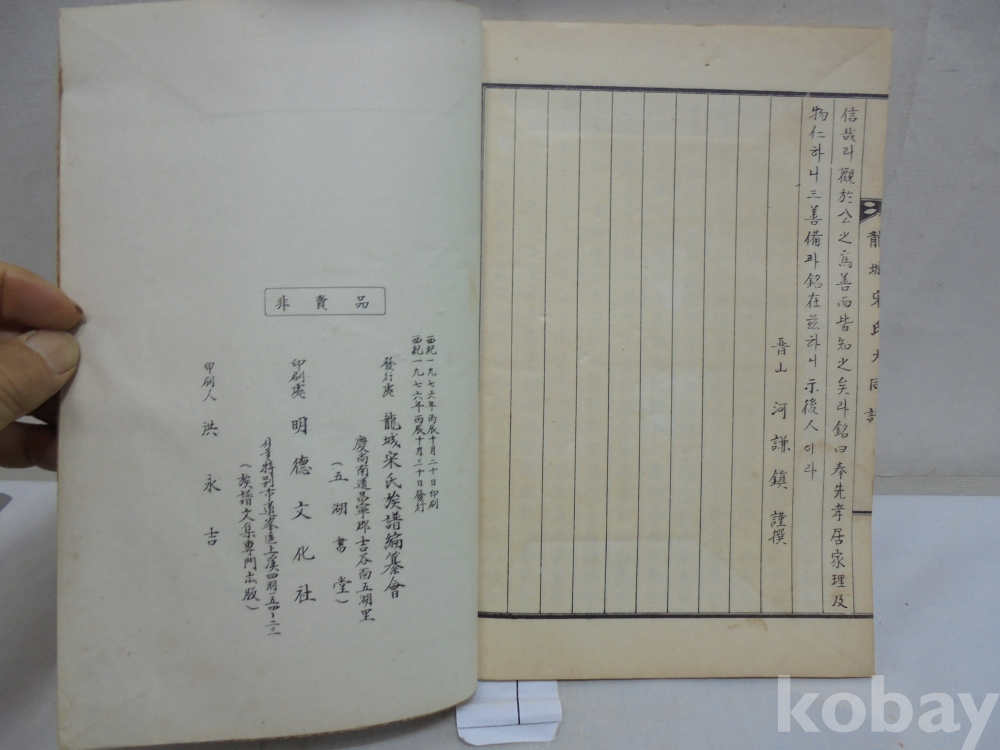 信哉라觀於公之爲善而皆知之矣라銘曰奉先孝居家理及
物仁하니三善備라銘在玆하니示後人이라
晋山 河謙鎭 謹撰
龍城宋氏大同譜
非賣品
西紀一九七六年丙辰十月二十日印刷
西紀一九七六年丙辰十月三十日發行
發行處 龍城宋氏族譜編纂會
慶尙南道昌寧郡吉谷面五湖里
(五湖書堂)
印刷處 明德文化社
서울特別市道峯區上溪四洞五四~二三
(族譜文集專門出版)
印刷人 洪永吉
kobay